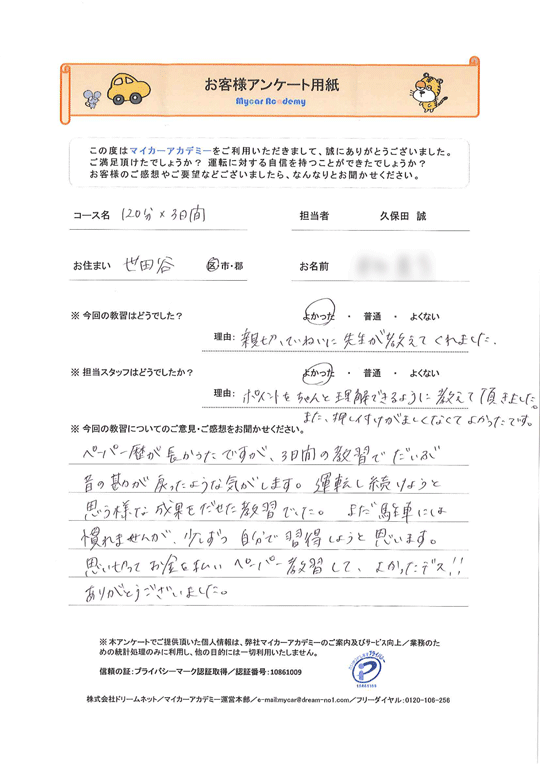 お客様アンケート用紙
Mycar Academy
この度はマイカーアカデミーをご利用いただきまして、誠にありがとうございました。
ご満足頂けたでしょうか？ 運転に対する自信を持つことができたでしょうか？
お客様のご感想やご要望などございましたら、なんなりとお聞かせください。
コース名 120分×3日間 担当者 久保田 誠
お住まい 世田谷 区・市・郡 お名前
※ 今回の教習はどうでした？ よかった ・ 普通 ・ よくない
理由： 親切、ていねいに先生が教えてくれました。
※ 担当スタッフはどうでしたか？ よかった ・ 普通 ・ よくない
理由： ポイントをちゃんと理解できるように教えて頂きました。
また、押し付けがましくなくてよかったです。
※ 今回の教習についてのご意見・ご感想をお聞かせください。
ペーパー歴が長かったですが、3日間の教習でだいぶ
昔の勘が戻ったような気がします。運転し続けようと
思う様な成果をだせた教習でした。まだ駐車には
慣れませんが、少しずつ自分で習得しようと思います。
思い切ってお金を払いペーパー教習して、よかったデス!!
ありがとうございました。
※ 本アンケートでご提供頂いた個人情報は、弊社マイカーアカデミーのご案内及びサービス向上／業務のた
めの統計処理のみに利用し、他の目的には一切利用いたしません。
信頼の証：プライバシーマーク認証取得／認証番号：10861009
株式会社ドリームネット／マイカーアカデミー運営本部／e-mail:mycar@dream-no1.com／フリーダイヤル：0120-106-256